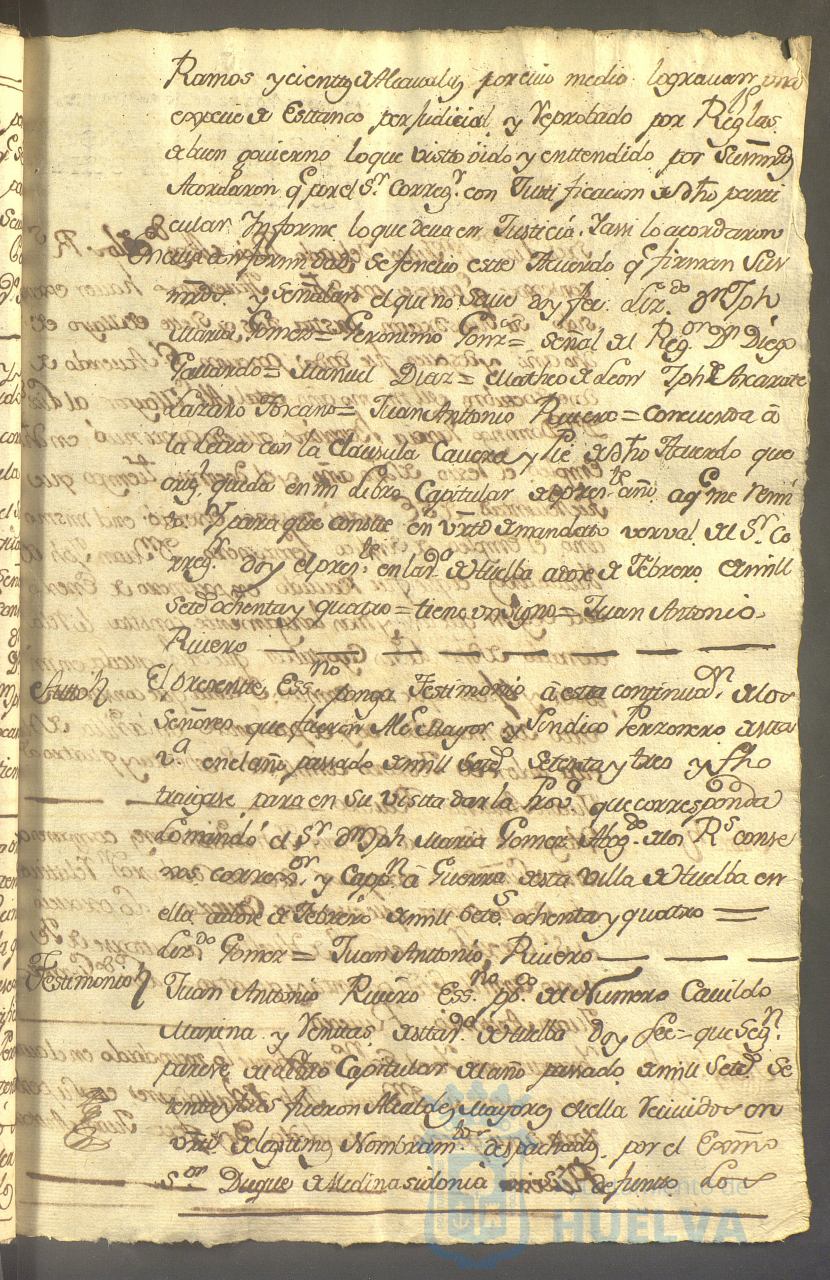 Ramos y cientos de Alcavalas por cuio medio lograuan una
especie de Estanco perjudicial y reprobado por Reglas
de buen govierno lo que visto oido y enttendido por sus mrds
Acordaron q.e por el S.r Correg.r con Justificacion de dho parti
cular Informe lo que deva en Justicia. Y assi lo acordaron
En cuia conformidad se fenecio este Acuerdo q.e firman sus
mrds. y señalan el que no save doy fee. Liz.do Dn Jph
Maria Gomez = Geronimo Gomz = señal del Reg.or Dn Diego
Gallardo = Manuel Diaz = Matheo de Leon Jph de Arcarate
Lazaro Forcano = Juan Antonio Riuero = Concuerda â
la Letra con la Clausula Caveza y Pie de dho Acuerdo que
orig.l queda en mi Libro Capitular del pres.te año aq.e me remi
to. Y para que conste en virtd de mandato verval del S.r Co
rreg.r doy el pres.te en la V.a de Huelba a doze de Febrero de mill
Setes ochenta y quatro = tiene un signo = Juan Antonio
Riuero
Autto El presente Ess.no ponga Testimonio â esta continuaz.n de los
Señores que fueron Alc Mayor y Sindico Perzonero de esta
V.a en el año passado de mill Sets. Setenta y tres y fho
traigase para en su visita dar la Prov.a que corresponda
Lo mandó el S.r Dn Jph Maria Gomez Abog.do de los R.s conse
xos corregor. y Capp.n â Guerra de esta Villa de Huelba en
ella a doze de Febrero de mill Setes. ochenta y quatro =
Liz.do Gomez = Juan Anttonio Riuero
Testimonio Juan Antonio Riuero Ess.no pp.co del Numero Cavildo
Marina y Rentas de esta V.a de Huelba Doy fee = que Seg.n
parese del Libro Capitular del año passado de mill Sets. Se
tenta y tres fueron Alcaldes Mayores de ella Recividos en
virtd de legitimo Nombram.to despachado por el Exmo
S.or Duque de Medinasidonia difunto Los
Ayuntamiento de
HUELVA